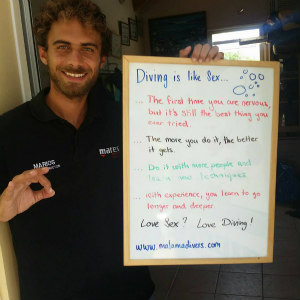 Diving is like Sex...
... The first time you are nervous,
but it's still the best thing you
ever tried.
... The more you do it, the better
it gets.
... Do it with more people and
learn new techniques.
... With experience, you learn to go
longer and deeper.
Love Sex? Love Diving!
www.malamadivers.com
MARIOS
mares